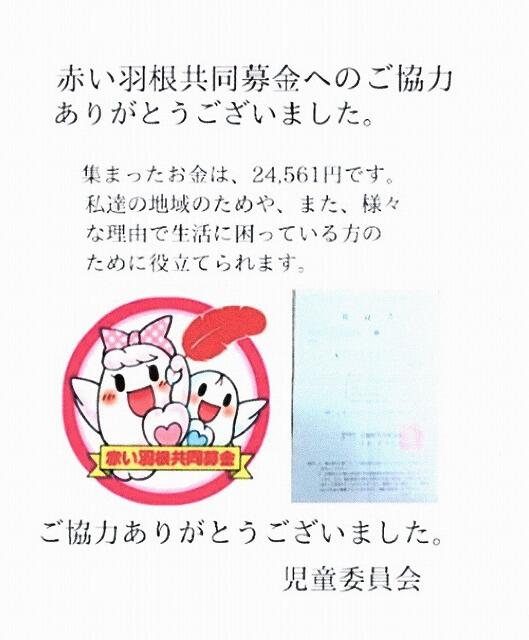 赤い羽根共同募金へのご協力
ありがとうございました。
集まったお金は、24,561円です。
私達の地域のためや、また、様々
な理由で生活に困っている方の
ために役立てられます。
赤い羽根共同募金
ご協力ありがとうございました。
児童委員会